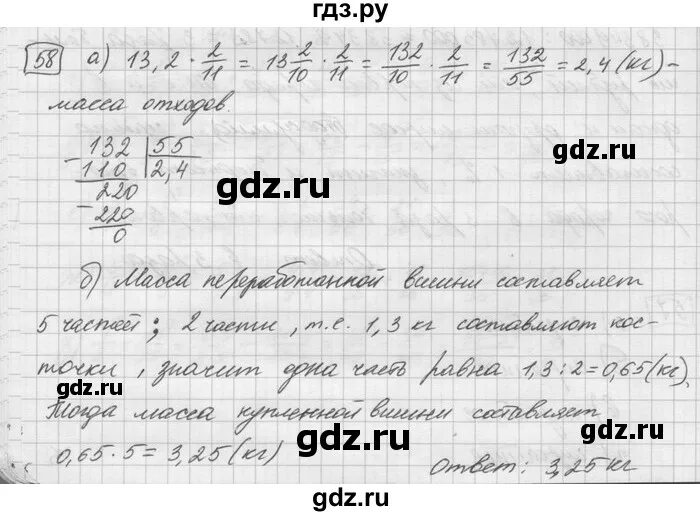 гдз.ру
58 а) 13,2 · 2/11 = 13 2/10 · 2/11 = 132/10 · 2/11 = 132/55 = 2,4 (кг) –
масса отходов.
132 | 55
110 | 2,4
220
220
0
gdz.ru
gdz.ru
б) Масса переработанной вишни составляет
5 частей; 2 части, т.е. 1,3 кг составляют кос-
точки, значит одна часть равна 1,3 : 2 = 0,65 (кг),
gdz.ru
Тогда масса купленной вишни составляет
0,65 · 5 = 3,25 (кг)
Ответ: 3,25 кг
gdz.ru